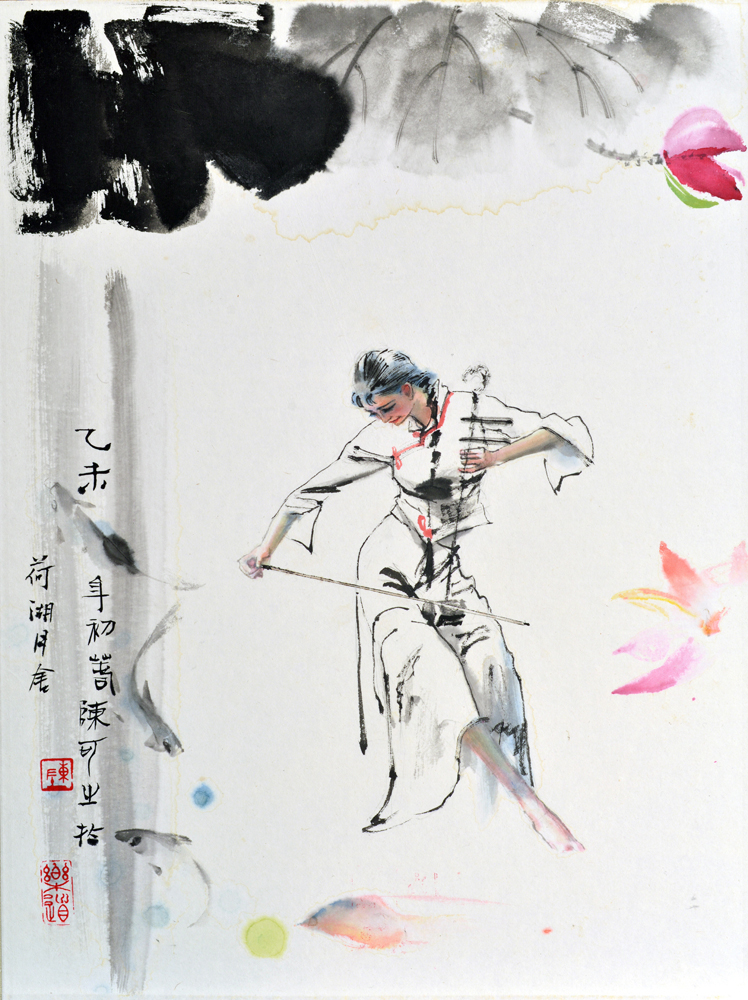 乙未年初萅陳可之於
荷湖月舍
陳
樂道